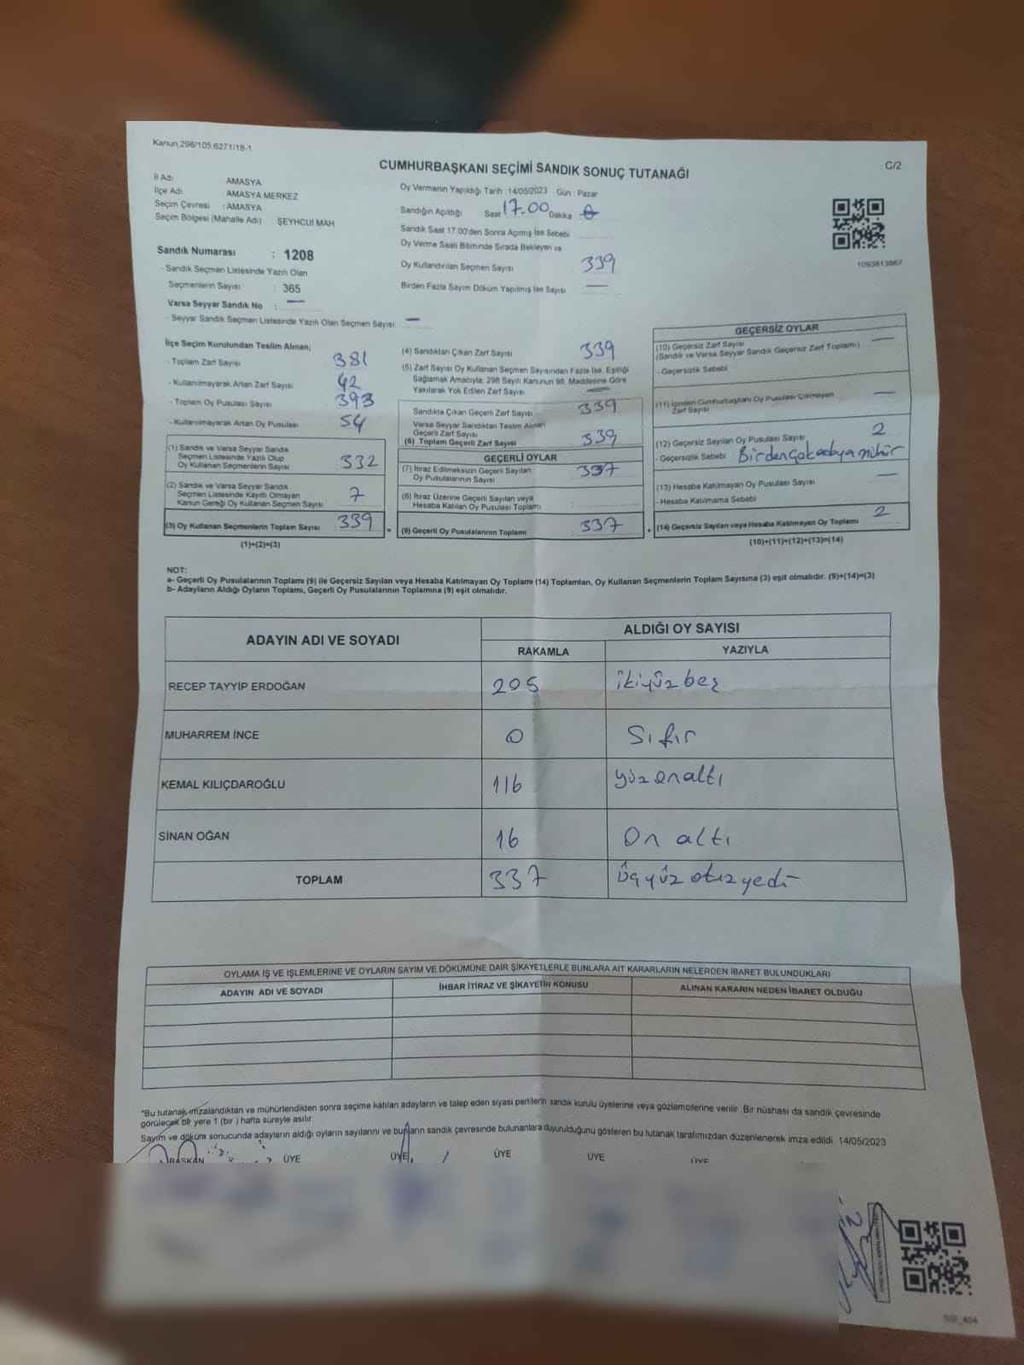 Kanun 298/105,6271/18-1
CUMHURBAŞKANI SEÇİMİ SANDIK SONUÇ TUTANAĞI
C/2
İl Adı : AMASYA
İlçe Adı : AMASYA MERKEZ
Seçim Çevresi : AMASYA
Seçim Bölgesi (Mahalle Adı) : ŞEYHCUİ MAH
Oy Vermenin Yapıldığı Tarih : 14/05/2023 Gün : Pazar
Sandığın Açıldığı Saat 17.00 Dakika 0
Sandık Saat 17.00'den Sonra Açılmış İse Sebebi
Oy Verme Saati Bitiminde Sırada Bekleyen ve
Oy Kullandırılan Seçmen Sayısı 339
Birden Fazla Sayım Döküm Yapılmış İse Sayısı —
Sandık Numarası : 1208
- Sandık Seçmen Listesinde Yazılı Olan
Seçmenlerin Sayısı : 365
Varsa Seyyar Sandık No : —
- Seyyar Sandık Seçmen Listesinde Yazılı Olan Seçmen Sayısı : —
İlçe Seçim Kurulundan Teslim Alınan;
- Toplam Zarf Sayısı 381
- Kullanılmayarak Artan Zarf Sayısı 42
- Toplam Oy Pusulası Sayısı 393
- Kullanılmayarak Artan Oy Pusulası 54
(1) Sandık ve Varsa Seyyar Sandık
Seçmen Listesinde Yazılı Olup
Oy Kullanan Seçmenlerin Sayısı 332
(2) Sandık ve Varsa Seyyar Sandık
Seçmen Listesinde Kayıtlı Olmayan
Kanun Gereği Oy Kullanan Seçmen Sayısı 7
(3) Oy Kullanan Seçmenlerin Toplam Sayısı 339
(1)+(2)=(3)
(4) Sandıktan Çıkan Zarf Sayısı 339
(5) Zarf Sayısı Oy Kullanan Seçmen Sayısından Fazla İse, Eşitliği
Sağlamak Amacıyla, 298 Sayılı Kanunun 98. Maddesine Göre
Yakılarak Yok Edilen Zarf Sayısı —
Sandıkta Çıkan Geçerli Zarf Sayısı 339
Varsa Seyyar Sandıktan Teslim Alınan
Geçerli Zarf Sayısı
(6) Toplam Geçerli Zarf Sayısı 339
GEÇERLİ OYLAR
(7) İtiraz Edilmeksizin Geçerli Sayılan
Oy Pusulalarının Sayısı 337
(8) İtiraz Üzerine Geçerli Sayılan veya
Hesaba Katılan Oy Pusulası Toplamı
(9) Geçerli Oy Pusulalarının Toplamı 337
GEÇERSİZ OYLAR
(10) Geçersiz Zarf Sayısı
(Sandık ve Varsa Seyyar Sandık Geçersiz Zarf Toplamı) —
- Geçersizlik Sebebi
(11) İçinden Cumhurbaşkanı Oy Pusulası Çıkmayan
Zarf Sayısı —
(12) Geçersiz Sayılan Oy Pusulası Sayısı 2
- Geçersizlik Sebebi Birden çok adaya mühür
(13) Hesaba Katılmayan Oy Pusulası Sayısı —
- Hesaba Katılmama Sebebi
(14) Geçersiz Sayılan veya Hesaba Katılmayan Oy Toplamı 2
(10)+(11)+(12)+(13)=(14)
1093813867
NOT:
a- Geçerli Oy Pusulalarının Toplamı (9) ile Geçersiz Sayılan veya Hesaba Katılmayan Oy Toplamı (14) Toplamları, Oy Kullanan Seçmenlerin Toplam Sayısına (3) eşit olmalıdır. (9)+(14)=(3)
b- Adayların Aldığı Oyların Toplamı, Geçerli Oy Pusulalarının Toplamına (9) eşit olmalıdır.
ADAYIN ADI VE SOYADI ALDIĞI OY SAYISI
RAKAMLA YAZIYLA
RECEP TAYYİP ERDOĞAN 205 ikiyüz beş
MUHARREM İNCE 0 Sıfır
KEMAL KILIÇDAROĞLU 116 yüz onaltı
SİNAN OĞAN 16 On altı
TOPLAM 337 üçyüz otuz yedi
OYLAMA İŞ VE İŞLEMLERİNE VE OYLARIN SAYIM VE DÖKÜMÜNE DAİR ŞİKAYETLERLE BUNLARA AİT KARARLARIN NELERDEN İBARET BULUNDUKLARI
ADAYIN ADI VE SOYADI İHBAR İTİRAZ VE ŞİKAYETİN KONUSU ALINAN KARARIN NEDEN İBARET OLDUĞU
"Bu tutanak imzalandıktan ve mühürlendikten sonra seçime katılan adayların ve talep eden siyasi partilerin sandık kurulu üyelerine veya gözlemcilerine verilir. Bir nüshası da sandık çevresinde
görülecek bir yere 1 (bir) hafta süreyle asılır.
Sayım ve döküm sonucunda adayların aldığı oyların sayılarını ve bunların sandık çevresinde bulunanlara duyurulduğunu gösteren bu tutanak tarafımızdan düzenlenerek imza edildi. 14/05/2023
BAŞKAN ÜYE ÜYE ÜYE ÜYE ÜYE